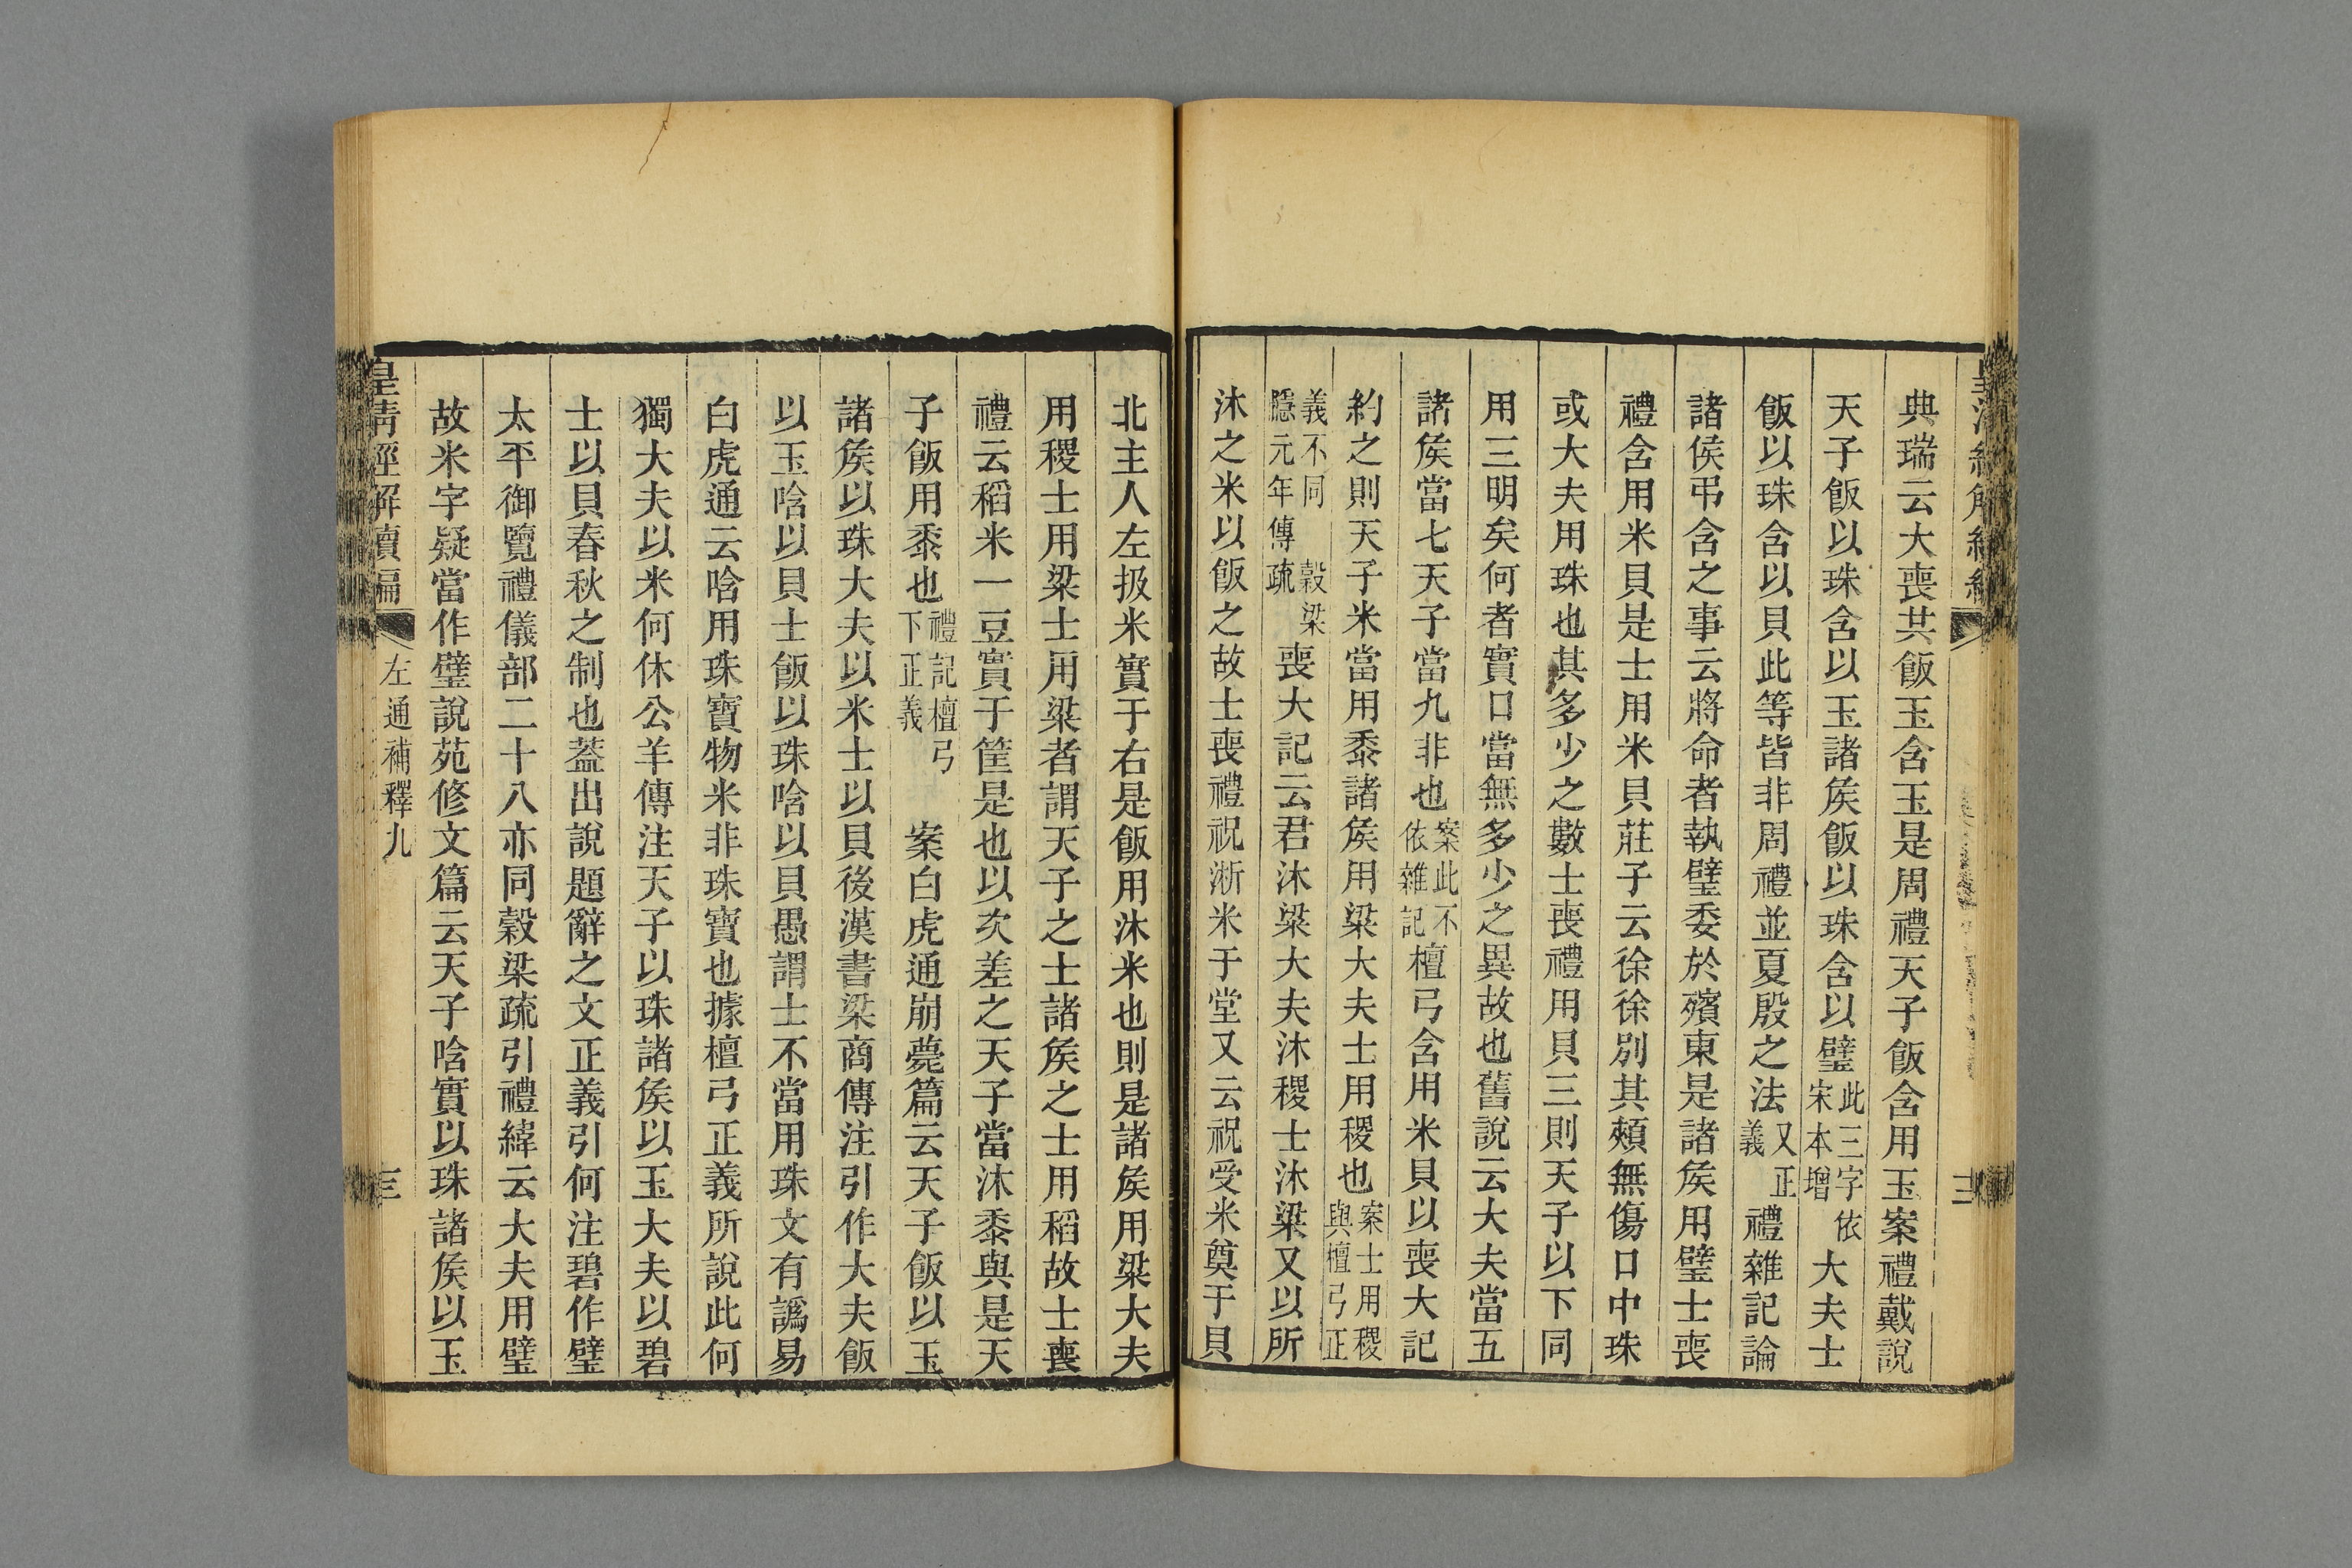 典瑞云大喪共飯玉含玉是周禮天子飯含用玉案禮戴說
天子飯以珠含以玉諸矦飯以珠含以璧此三字依宋本增大夫士
飯以珠含以貝此等皆非周禮並夏殷之法又正義禮雜記論
諸侯弔含之事云將命者執璧委於殯東是諸矦用璧士喪
禮含用米貝是士用米貝莊子云徐徐別其頰無傷口中珠
或大夫用珠也其多少之數士喪禮用貝三則天子以下同
用三明矣何者實口當無多少之異故也舊說云大夫當五
諸矦當七天子當九非也案此不依雜記檀弓含用米貝以喪大記
約之則天子米當用黍諸矦用粱大夫士用稷也案士用稷與檀弓正
義不同穀梁隱元年傳疏喪大記云君沐粱大夫沐稷士沐粱又以所
沐之米以飯之故士喪禮祝淅米于堂又云祝受米奠于貝
北主人左扱米實于右是飯用沐米也則是諸矦用粱大夫
用稷士用粱士用粱者謂天子之士諸矦之士用稻故士喪
禮云稻米一豆實于筐是也以次差之天子當沐黍與是天
子飯用黍也禮記檀弓下正義案白虎通崩薨篇云天子飯以玉
諸矦以珠大夫以米士以貝後漢書梁商傳注引作大夫飯
以玉唅以貝士飯以珠唅以貝愚謂士不當用珠文有譌易
白虎通云唅用珠寶物米非珠寶也據檀弓正義所說此何
獨大夫以米何休公羊傳注天子以珠諸矦以玉大夫以碧
士以貝春秋之制也葢出說題辭之文正義引何注碧作璧
太平御覽禮儀部二十八亦同穀梁疏引禮緯云大夫用璧
故米字疑當作璧說苑修文篇云天子唅實以珠諸矦以玉
皇清經解續編
左通補釋九
三